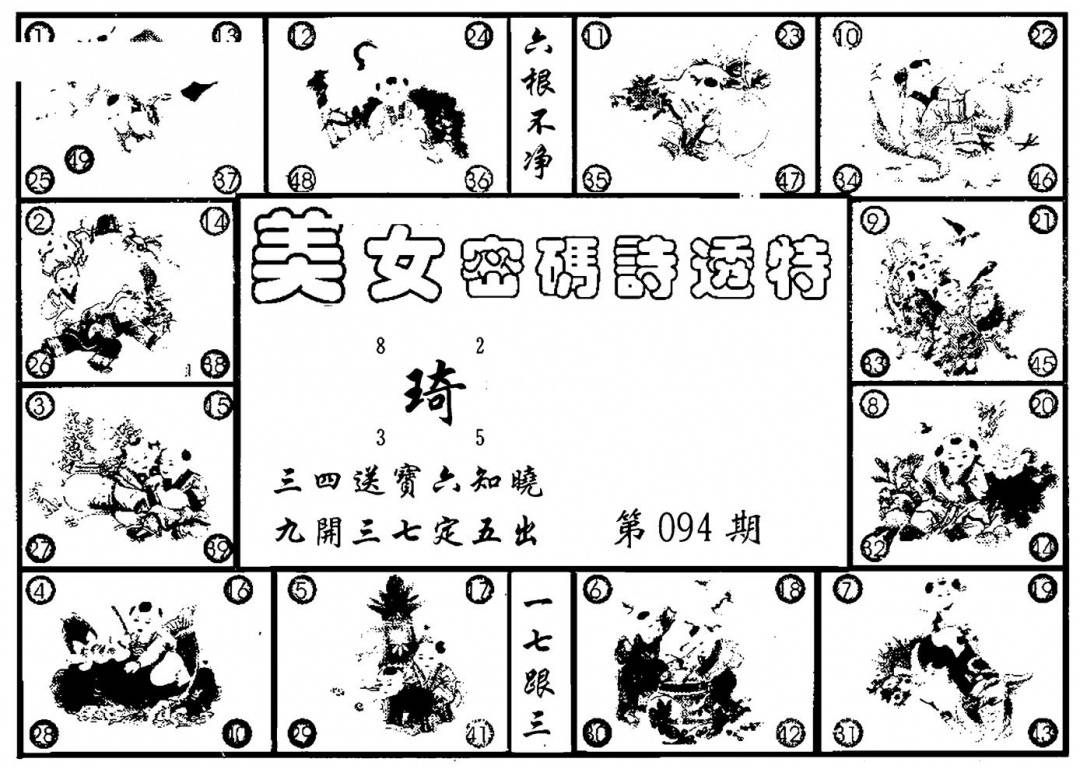 1 13
49
25 37
12 24
48 36
六根不净
11 23
35 47
10 22
34 46
2 14
26 38
美女密碼詩透特
9 21
33 45
8 2
琦
3 5
3 15
27 39
三四送寶六知曉
九開三七定五出 第094期
8 20
32 44
4 16
28 40
5 17
29 41
一七跟三
6 18
30 42
7 19
31 43